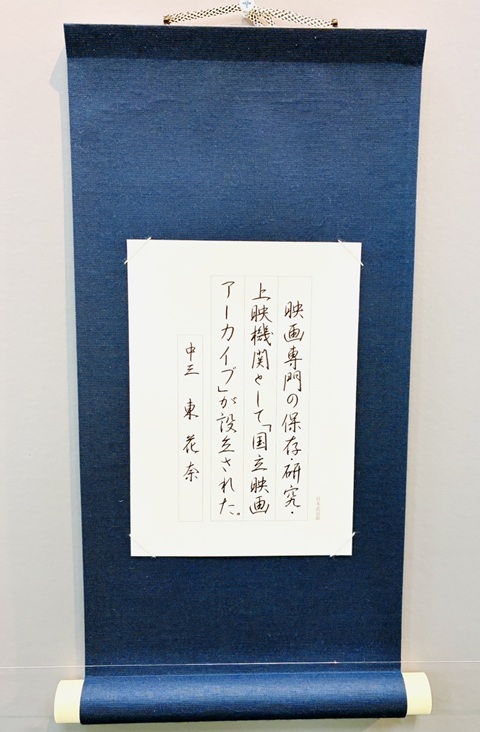 映画専門の保存・研究・
上映機関として「国立映画
アーカイブ」が設立された。
中三 東 花奈